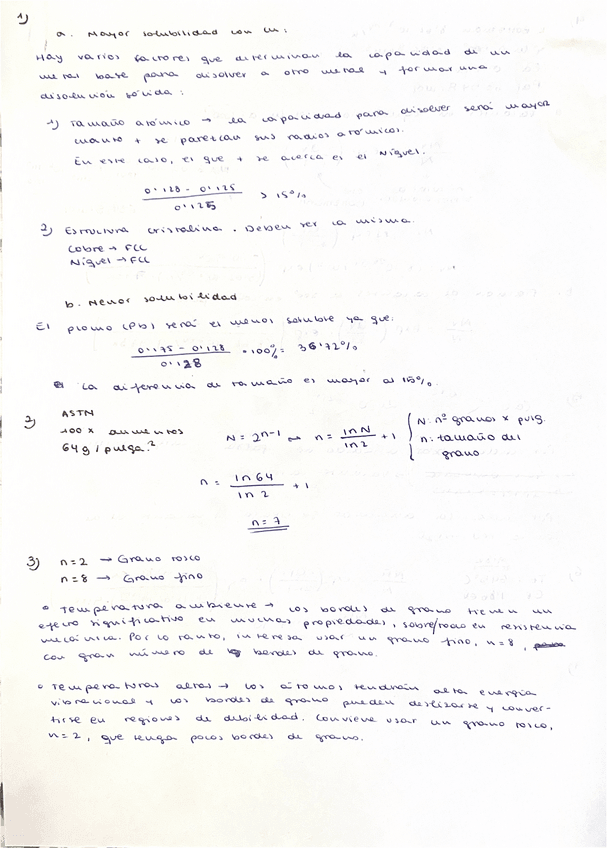 1)
a. Mayor solubilidad con Cu:
Hay varios factores que determinan la capacidad de un
metal base para disolver a otro metal y formar una
disolución sólida:
1) Tamaño atómico → la capacidad para disolver será mayor
cuanto + se parezcan sus radios atómicos.
En este caso, el que + se acerca es el Níquel.
0'128 - 0'125
0'125
> 15%
2) Estructura cristalina. Deben ser la misma.
Cobre → FCC
Níquel → FCC
b. Menor solubilidad
El plomo (Pb) será el menos soluble ya que:
0'175 - 0'128
0'128
· 100% = 36'72%
La diferencia de tamaño es mayor al 15%.
2)
ASTN
100 x aumentos
64 g / pulga.²
N = 2ⁿ⁻¹ → n = ln N / ln 2 + 1
N: nº granos x pulg.
n: tamaño del
grano
n = ln 64 / ln 2 + 1
n = 7
3) n = 2 → Grano tosco
n = 8 → Grano fino
• Temperatura ambiente → Los bordes de grano tienen un
efecto significativo en muchas propiedades, sobre/todo en resistencia
mecánica. Por lo tanto, interesa usar un grano fino, n = 8,
con gran número de bordes de grano.
• Temperaturas altas → Los átomos tendrán alta energía
vibracional y los bordes de grano pueden deslizarse y conver-
tirse en regiones de debilidad. Conviene usar un grano tosco,
n = 2, que tenga pocos bordes de grano.